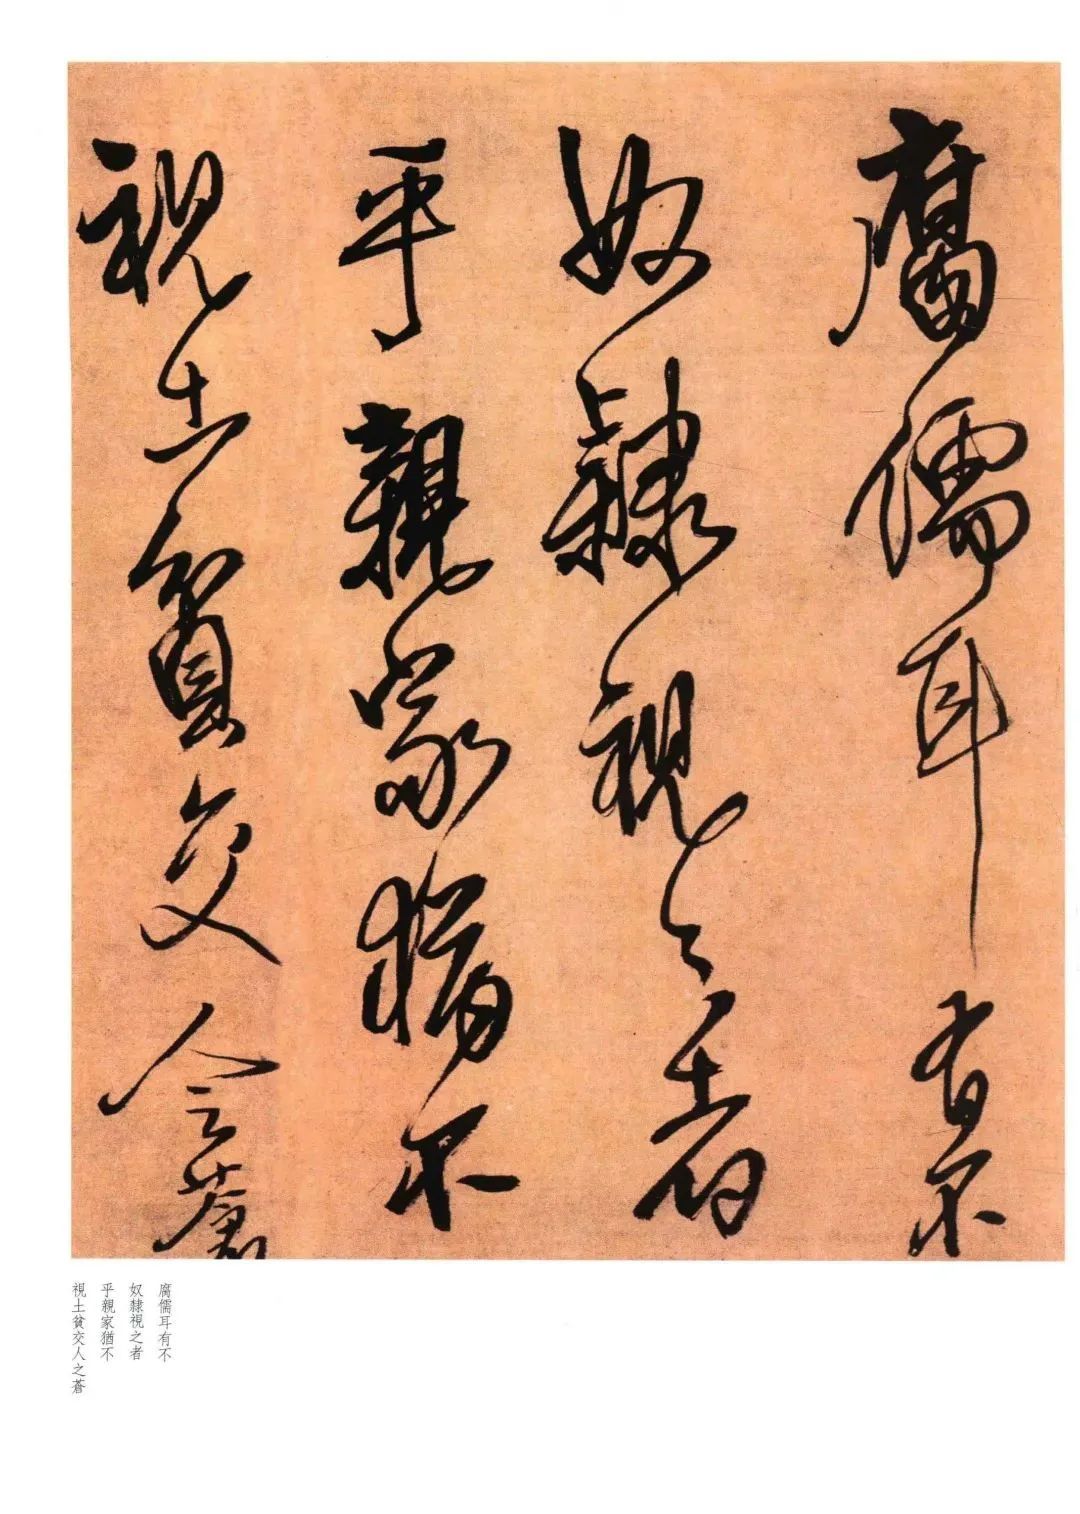 腐儒耳有不
奴隸視之者
乎親家猶不
視土貧交人之蒼
腐儒耳有不
奴隸視之者
乎親家猶不
視土貧交人之蒼